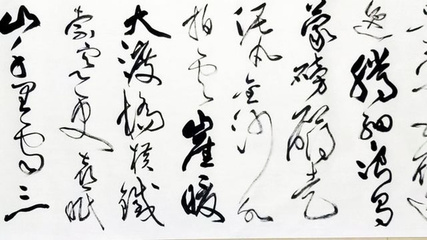 迤騰細浪烏
蒙磅礴走
泥丸金沙水
拍云崖暖
大渡橋横鐵
索寒更喜岷
山千里雪三